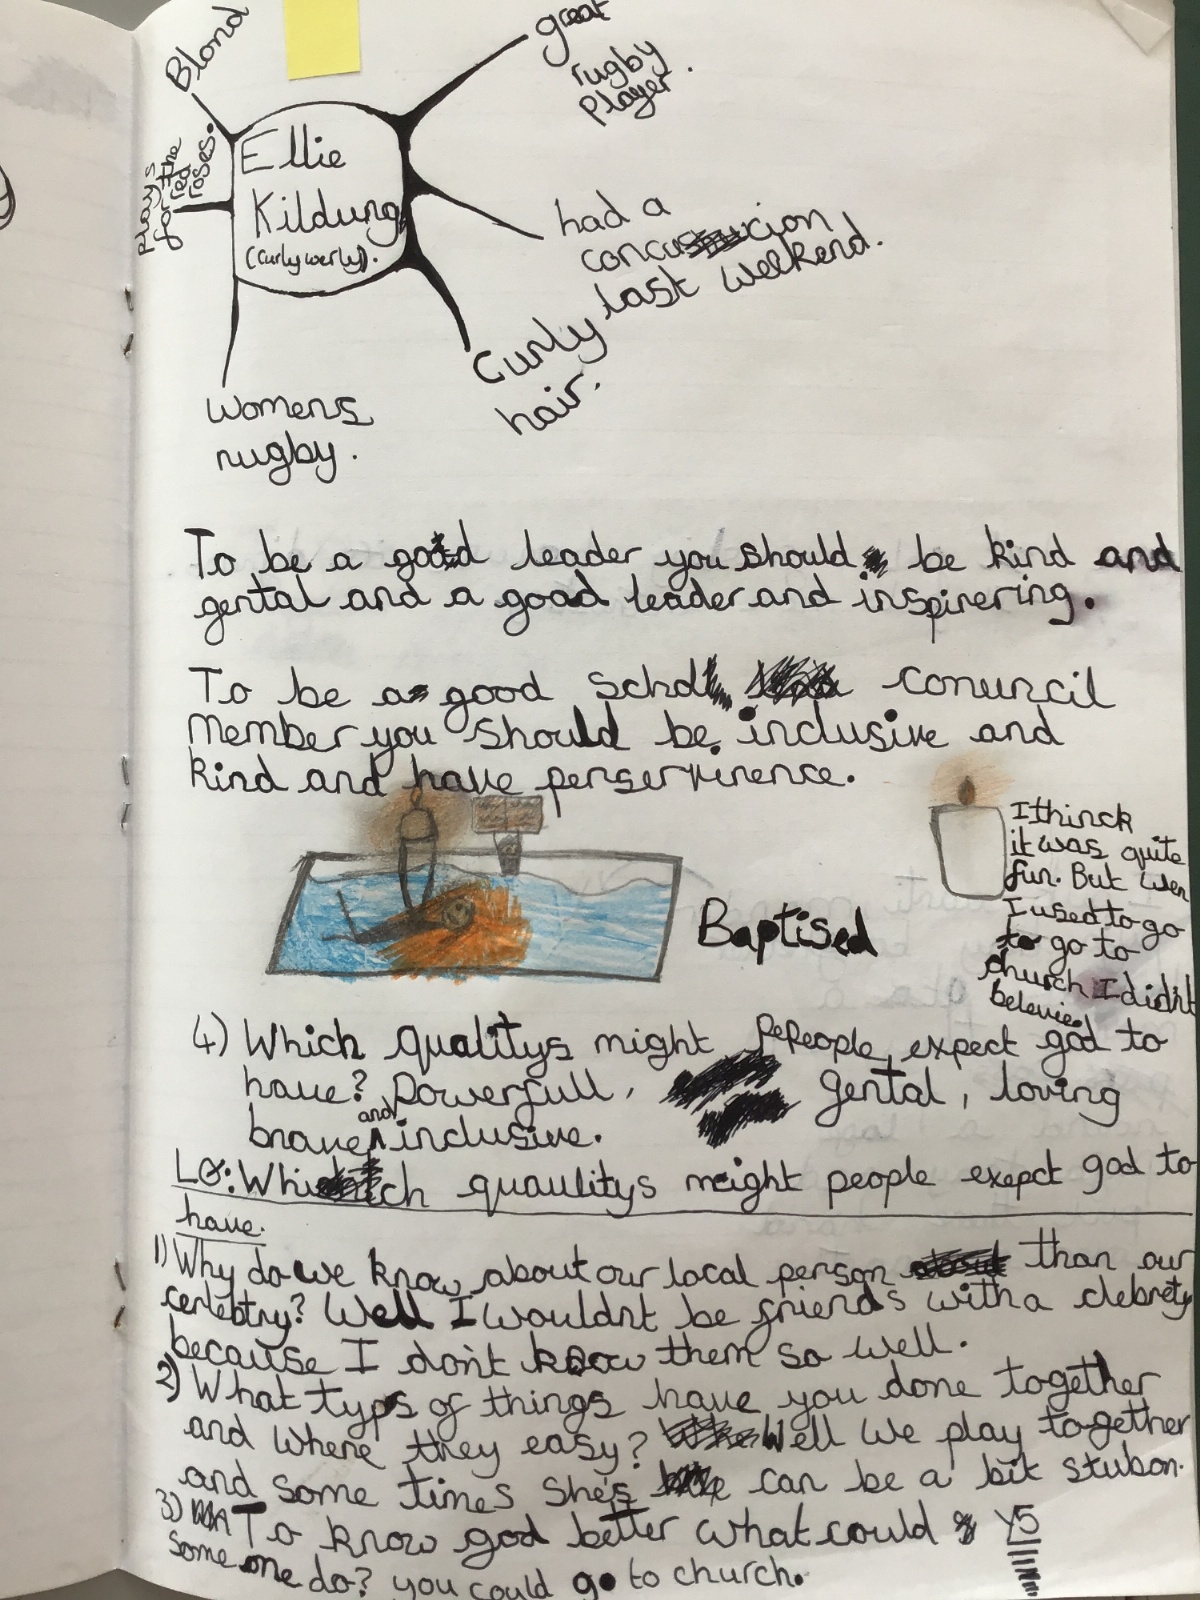 Blond
great
rugby
Player.
plays
for the
red
roses.
Ellie
Kildung
(curly werly).
had a
concucion
last weekend.
Curly
hair.
womens
rugby.
To be a good leader you should be kind and
gental and a good leader and inspirering.
To be a good school conuncil
Member you should be inclusive and
kind and have perservirence.
I thinck
it was quite
fun. But wen
I used to go
to go to
church I didn't
belevied
Baptised
4) Which qualitys might Pepeople expect god to
have? Powerfull, gental, loving
brave and inclusive.
LO: Which quaulitys meight people exepct god to
have.
1) Why do we know about our local person than our
cerlebtry? Well I wouldnt be friends with a clebrety
because I don't know them so well.
2) What typs of things have you done together
and where they easy? Well We play together
and some times she's can be a bit stubon.
3) To know god better what could Y5
some one do? you could go to church.